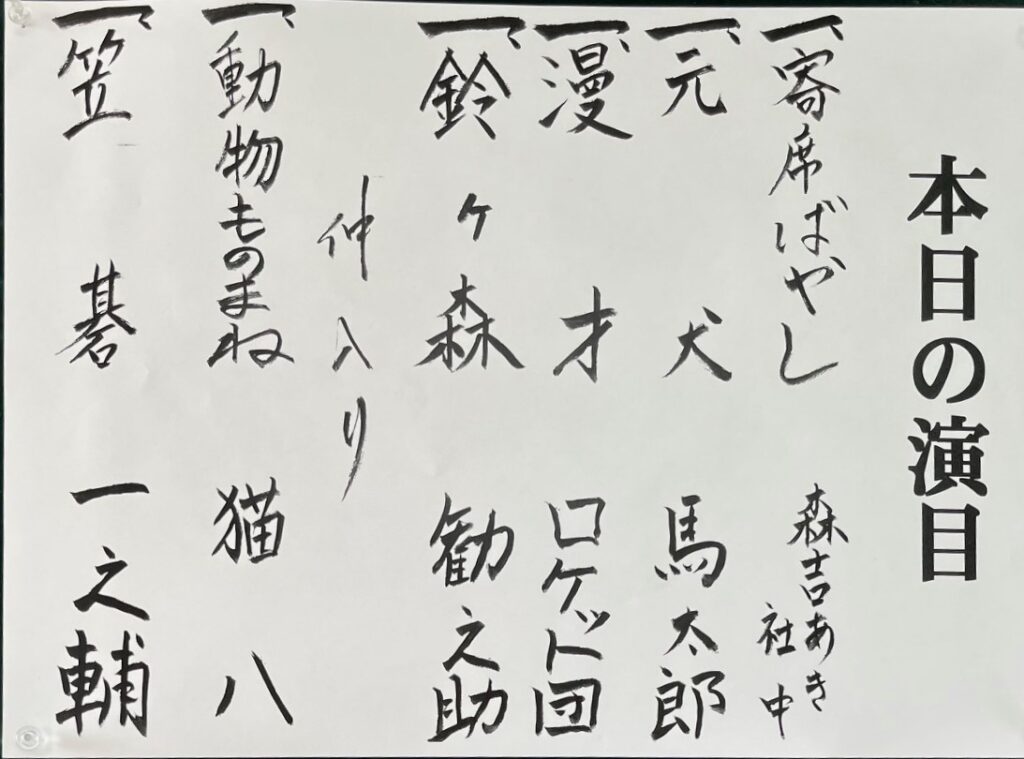 本日の演目
一、寄席ばやし 森吉あき社中
一、元犬 馬太郎
一、漫才 ロケット団
一、鈴ヶ森 勧之助
仲入り
一、動物ものまね 猫八
一、笠碁 一之輔